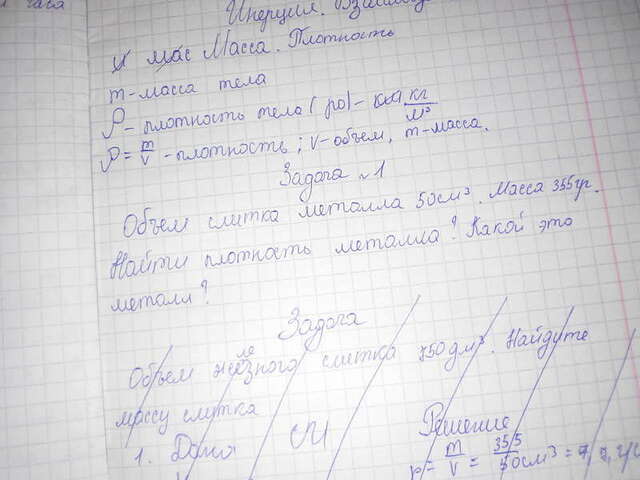 часа
Инерция. Взаимод
и мас Масса. Плотность
m-масса тела
ρ - плотность тела (ро) - кг/м³
ρ = m/v - плотность; v-объем, m-масса.
Задача №1
Объем слитка металла 50см³. Масса 355гр.
Найти плотность металла? Какой это
металл?
Задача
Объем железного слитка 750дм³. Найдите
массу слитка
1. Дано СИ Решение
ρ = m/v = 355/50см³ = 7,